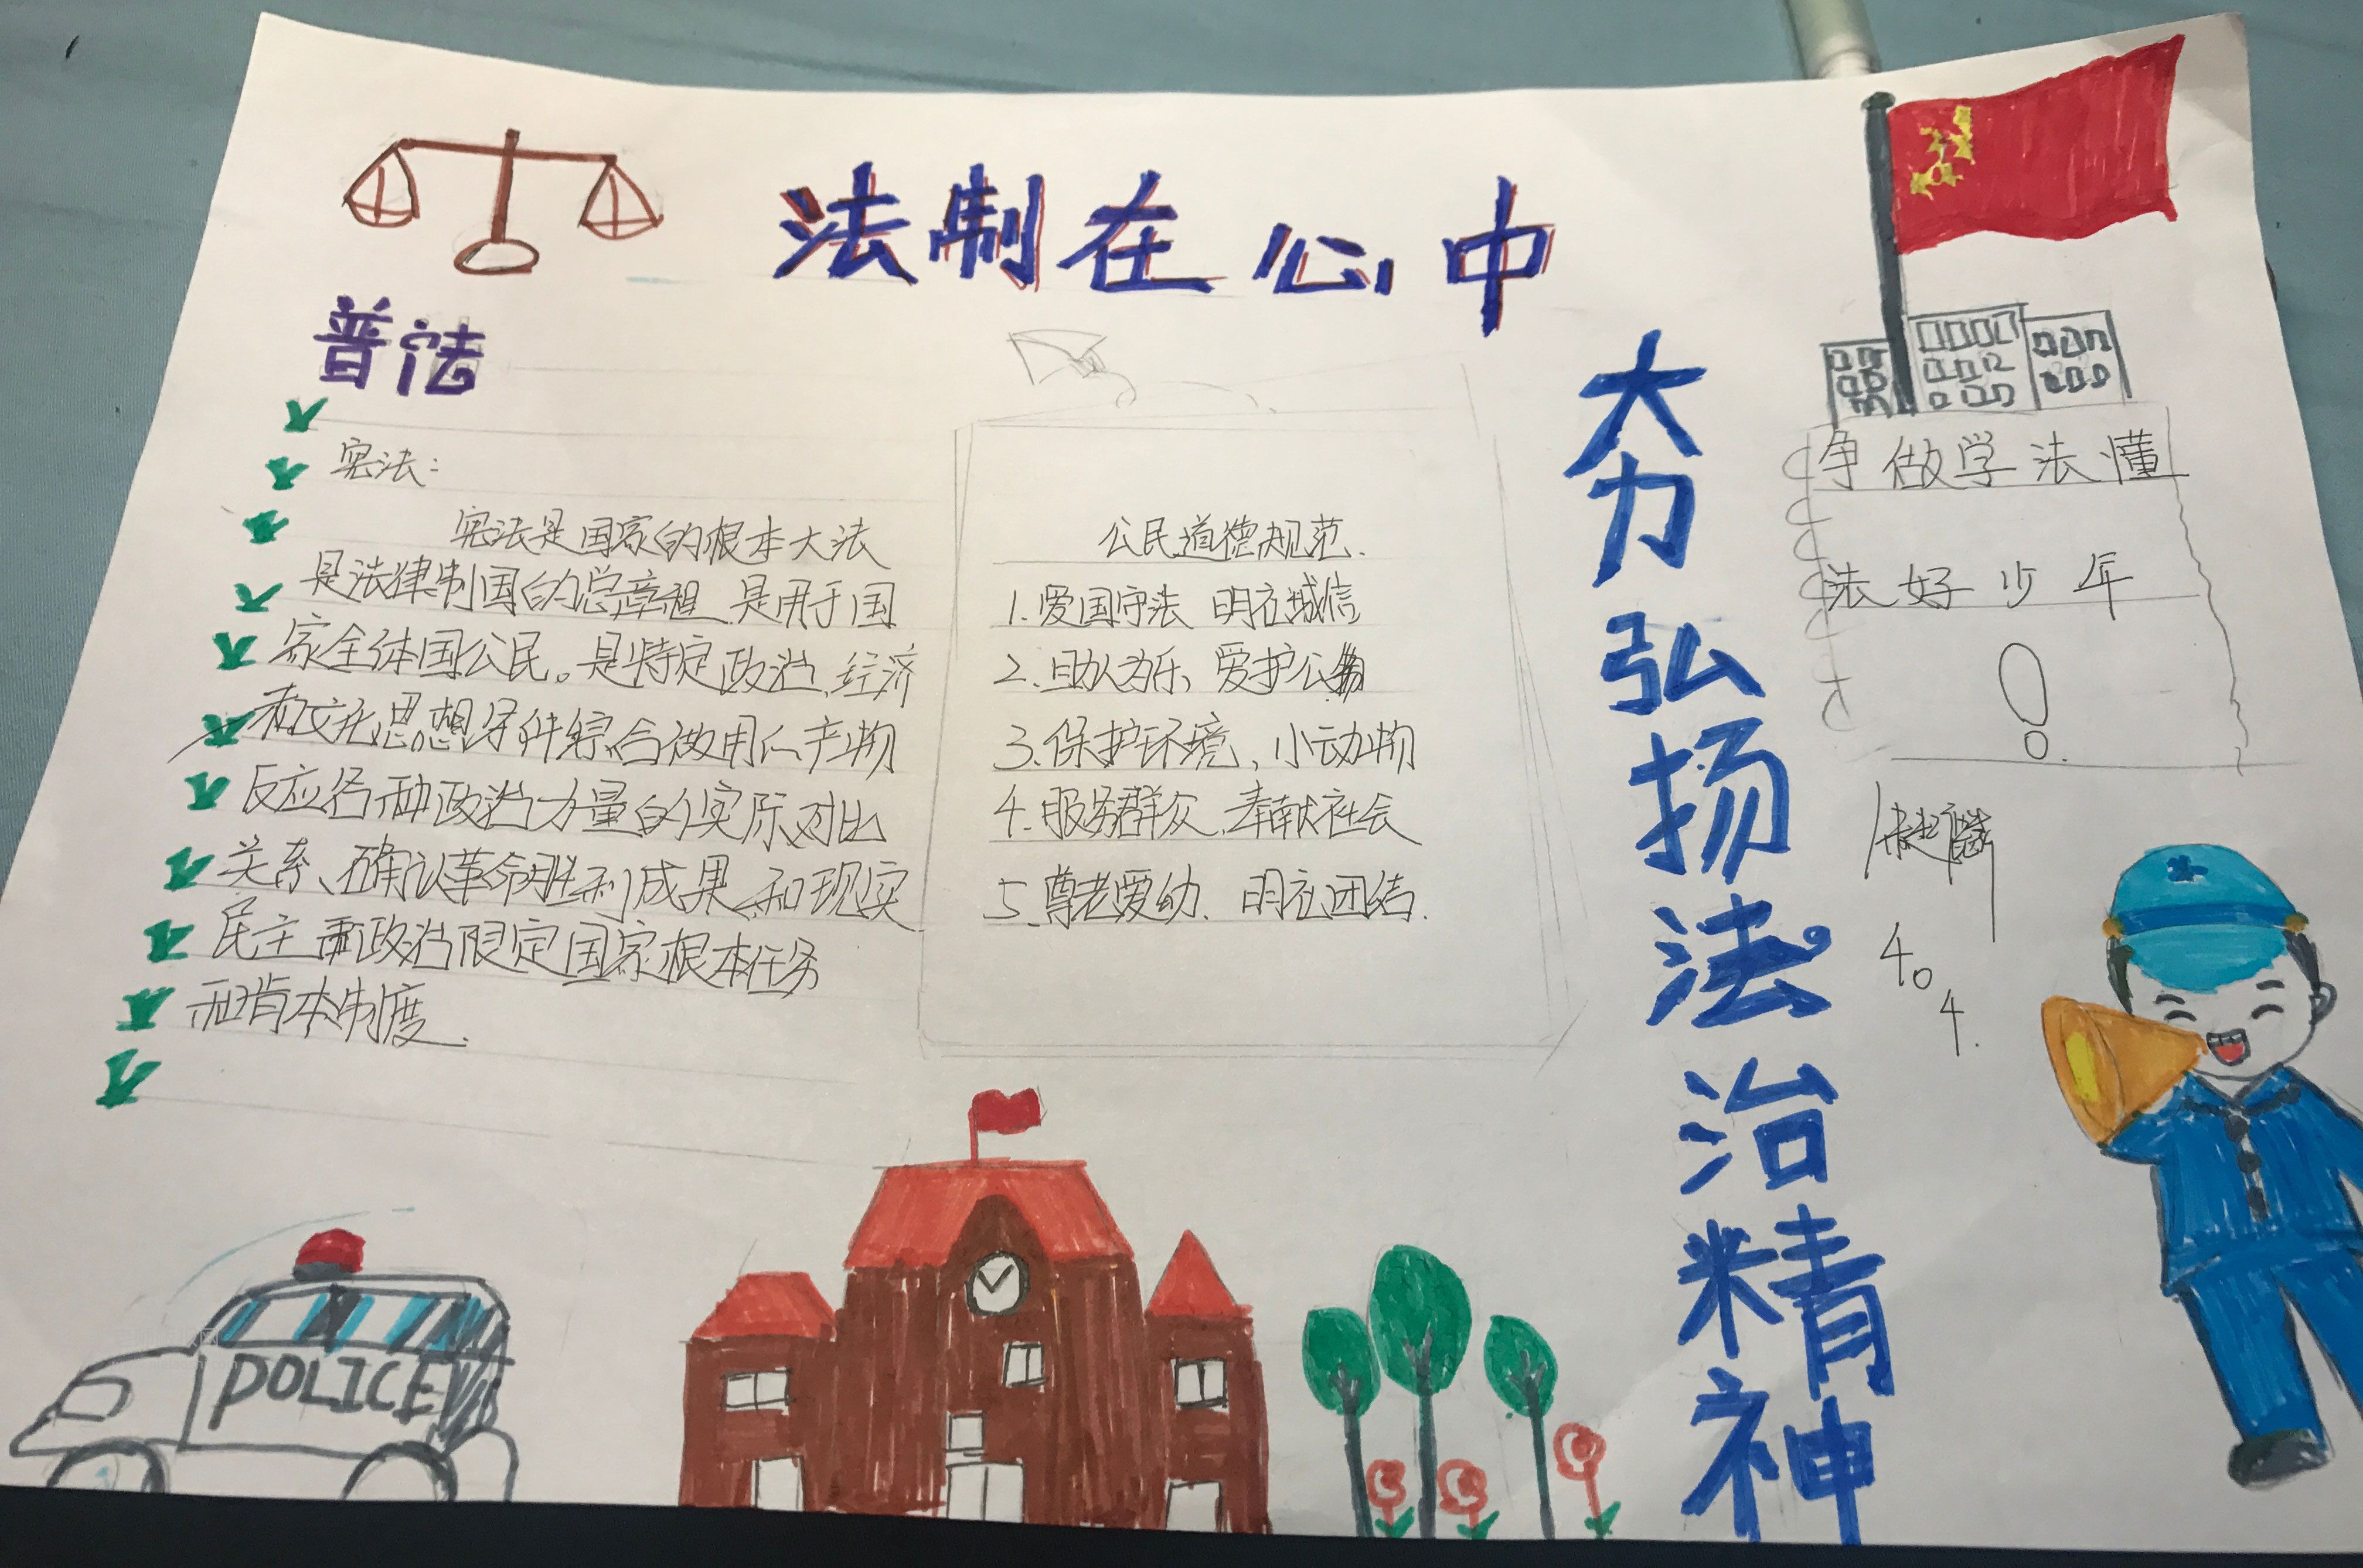 法制在心中
普法
宪法：
宪法是国家的根本大法
是法律制国的总章程 是用于国
家全体国公民。是特定政治、经济
和文化思想条件综合做用仁产物
反应各种政治力量的实际对比
关系、确认革命胜利成果、和现实
民主 政治限定国家根本任务
和肯本制度.
公民道德规范.
1.爱国守法 明礼诚信
2.助人为乐、爱护公物
3.保护环境、小动物
4.服务群众、奉献社会
5.尊老爱幼、明礼团结.
大力弘扬法治精神
争做学法懂
法好少年
!
404.
POLICE